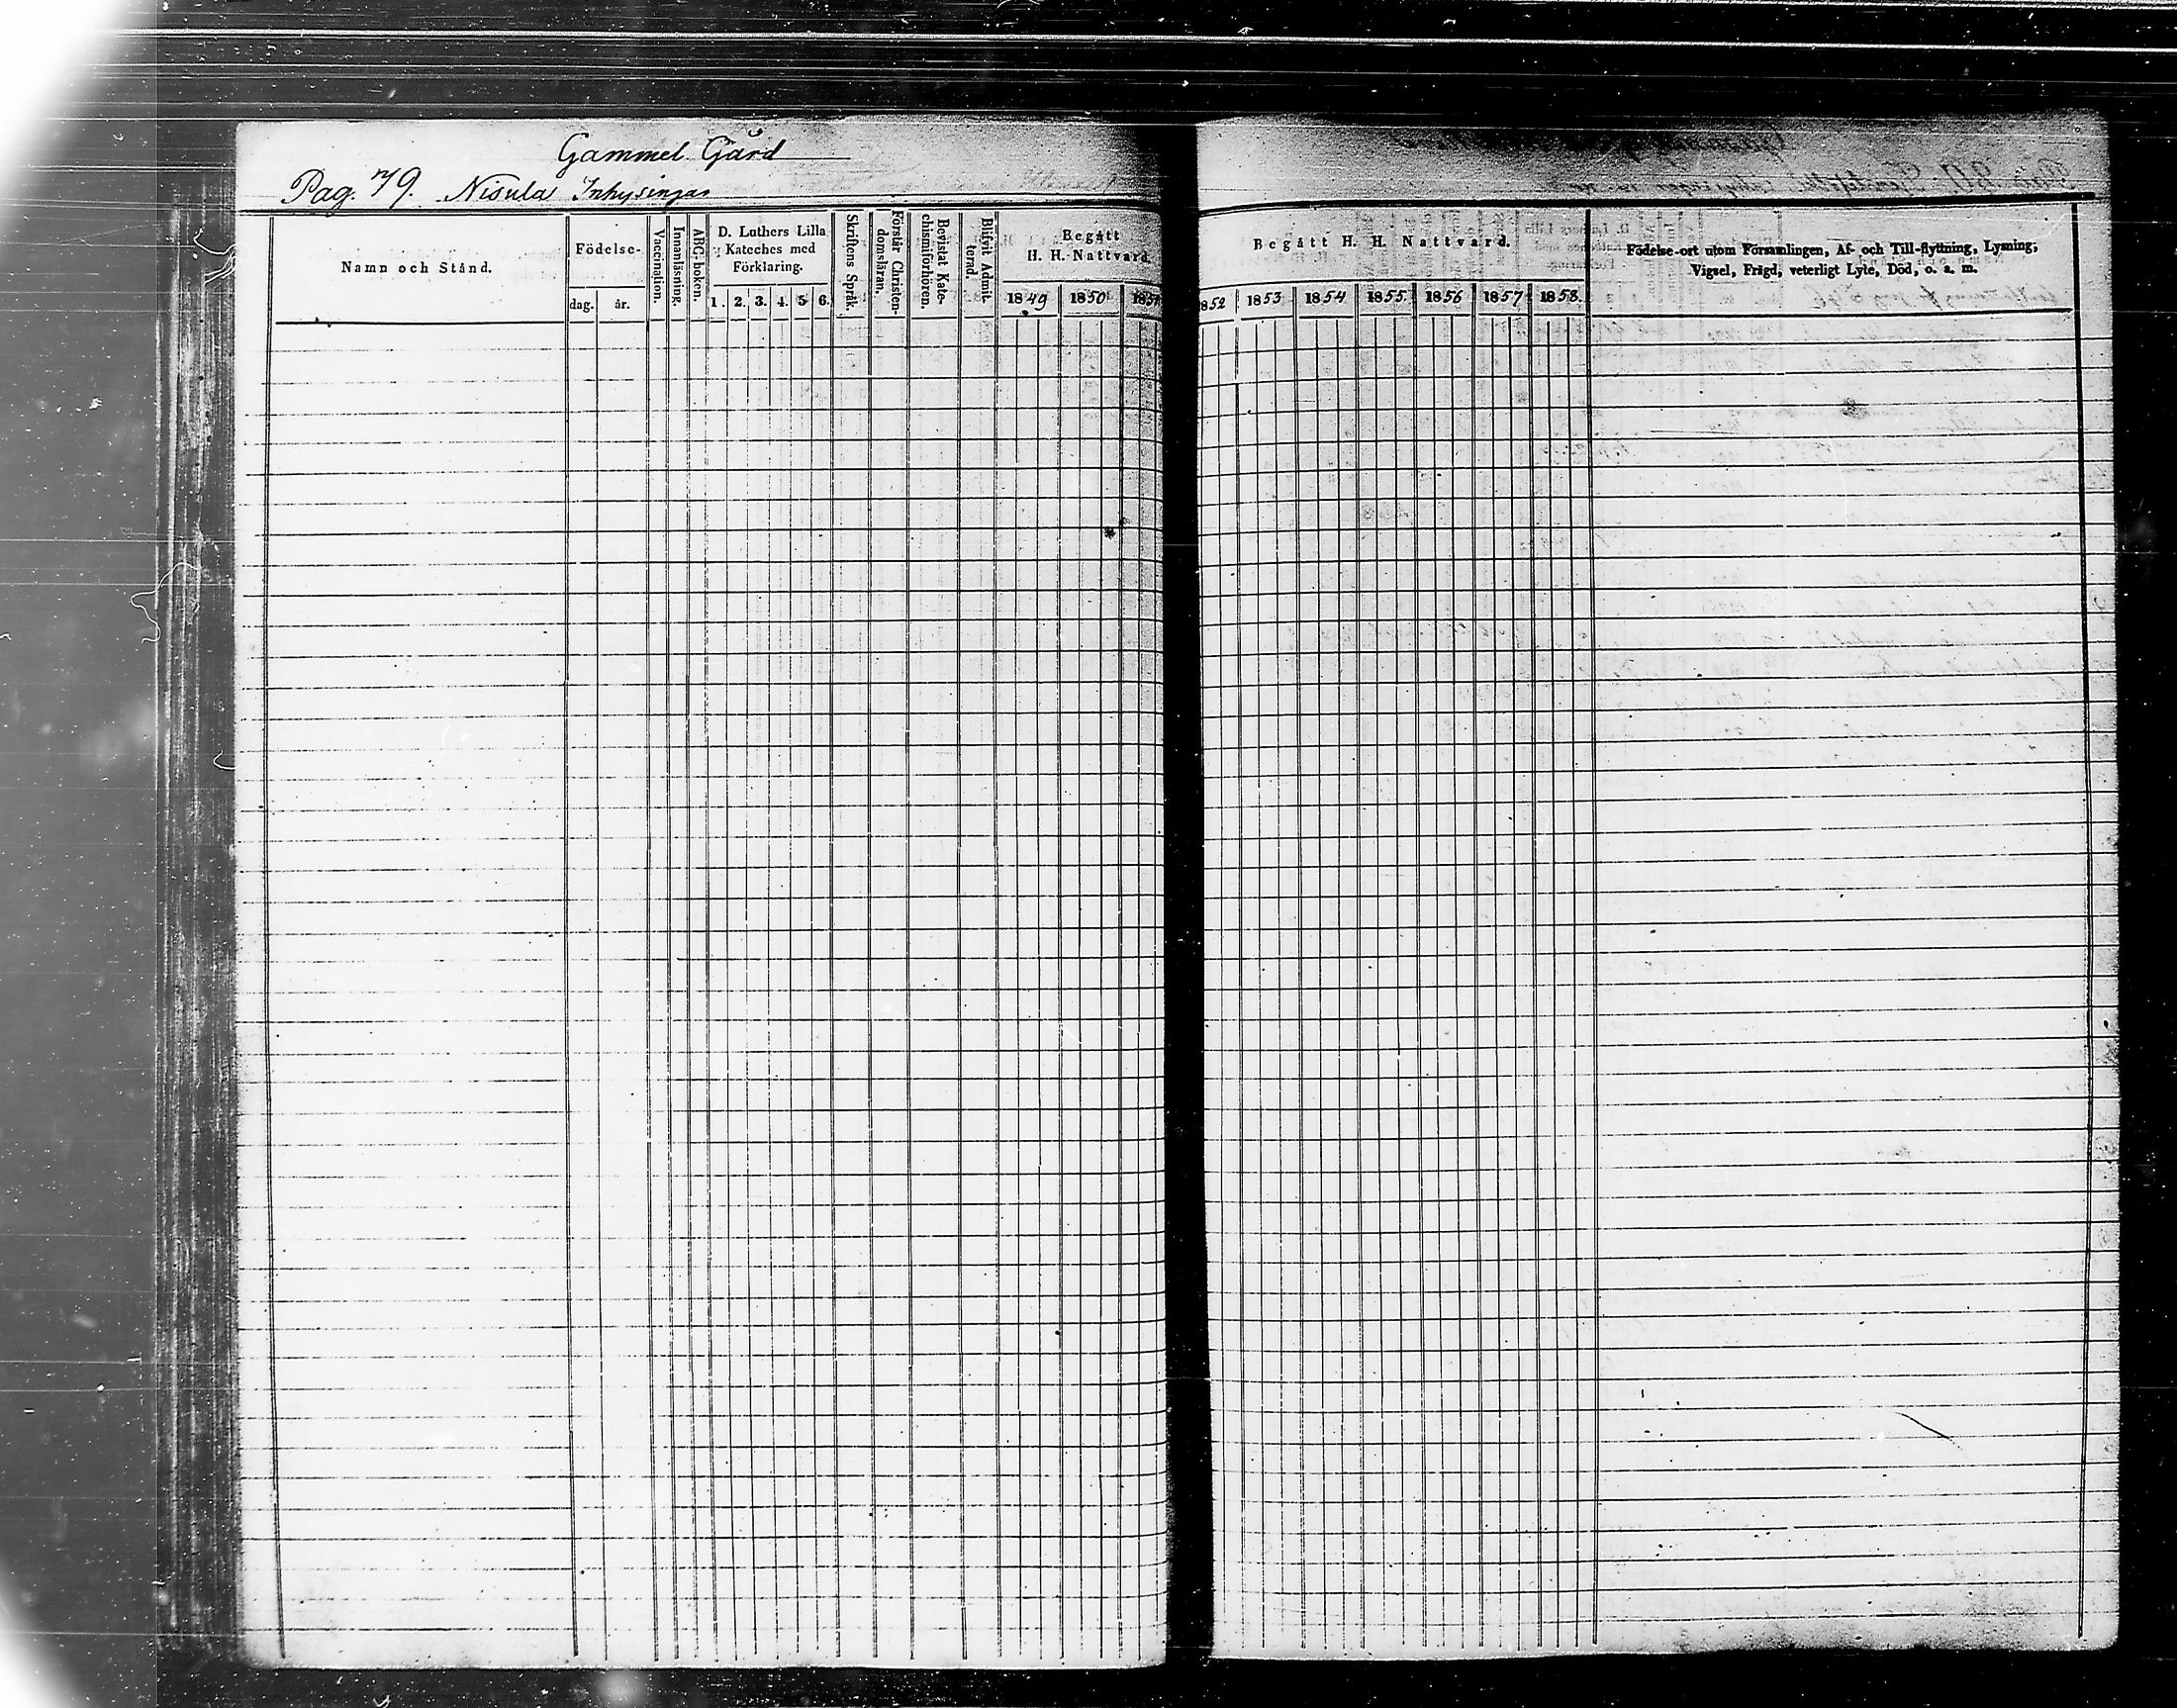 Gammel Gård
Pag. 79. Nisula Inhysingar
Namn och Stånd.
Födelse-
dag. år.
Vaccination.
Innanläsning.
ABC-boken.
D. Luthers Lilla
Kateches med
Förklaring.
1. 2. 3. 4. 5 6.
Skriftens Språk.
Förstår Christen-
domsläran.
Bevistat Kate-
chismiförhören.
Blifvit Admit-
terad.
Begått
H. H. Nattvard.
1849 1850 1851
Begått H. H. Nattvard.
1852 1853 1854 1855. 1856 1857 1858.
Födelse-ort utom Församlingen, Af- och Till-flyttning, Lysning,
Vigsel, Frägd, veterligt Lyte, Död, o. a. m.